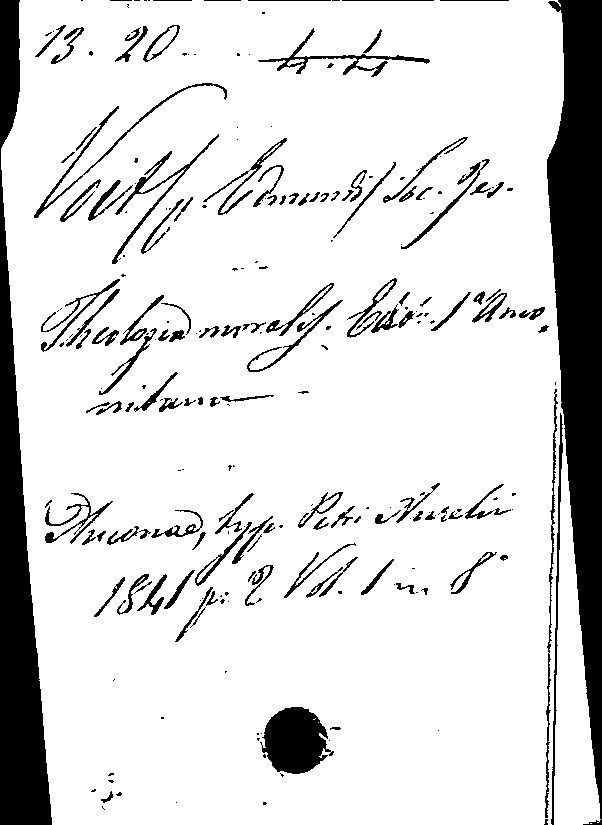 13. 20. 4. 4
Voit (p. Edmundi) Soc. Jes.
Theologia moralis. Edit. 1ª Anco=
nitana
Anconae, typ. Petri Aurelii
1841 p. 2 Vol. 1 in 8°